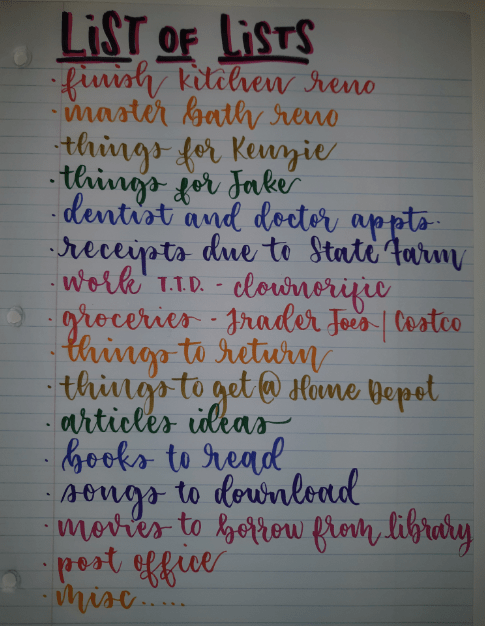 LiST OF LiSTS
· finish kitchen reno
· master bath reno
· things for Kenzie
· things for Jake
· dentist and doctor appts.
· receipts due to State Farm
· work T.T.D. - clownorific
· groceries - Trader Joes | Costco
· things to return
· things to get @ Home Depot
· articles ideas
· books to read
· songs to download
· movies to borrow from library
· post office
· misc.....